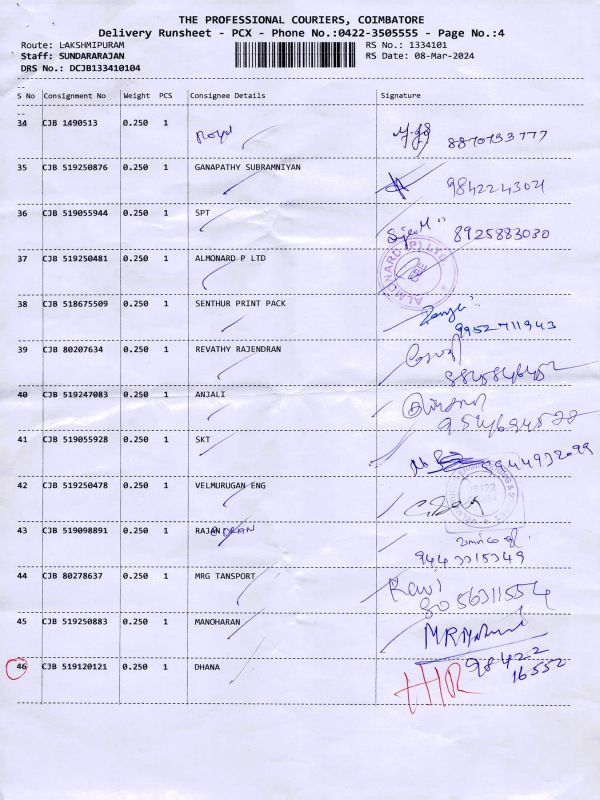 THE PROFESSIONAL COURIERS, COIMBATORE
Delivery Runsheet - PCX - Phone No.:0422-3505555 - Page No.:4
Route: LAKSHMIPURAM RS No.: 1334101
Staff: SUNDARARAJAN RS Date: 08-Mar-2024
DRS No.: DCJB133410104
S No Consignment No Weight PCS Consignee Details Signature
34 CJB 1490513 0.250 1 Royal 8870733777
35 CJB 519250876 0.250 1 GANAPATHY SUBRAMNIYAN 9842243021
36 CJB 519055944 0.250 1 SPT 8925883030
37 CJB 519250481 0.250 1 ALMONARD P LTD ALMONARD (P) LTD CBE
38 CJB 518675509 0.250 1 SENTHUR PRINT PACK
9952711943
39 CJB 80207634 0.250 1 REVATHY RAJENDRAN
40 CJB 519247083 0.250 1 ANJALI
41 CJB 519055928 0.250 1 SKT
42 CJB 519250478 0.250 1 VELMURUGAN ENG
43 CJB 519098891 0.250 1 RAJANDRAN
9443315349
44 CJB 80278637 0.250 1 MRG TANSPORT Ravi
8056311554
45 CJB 519250883 0.250 1 MANOHARAN
98422
16552
46 CJB 519120121 0.250 1 DHANA